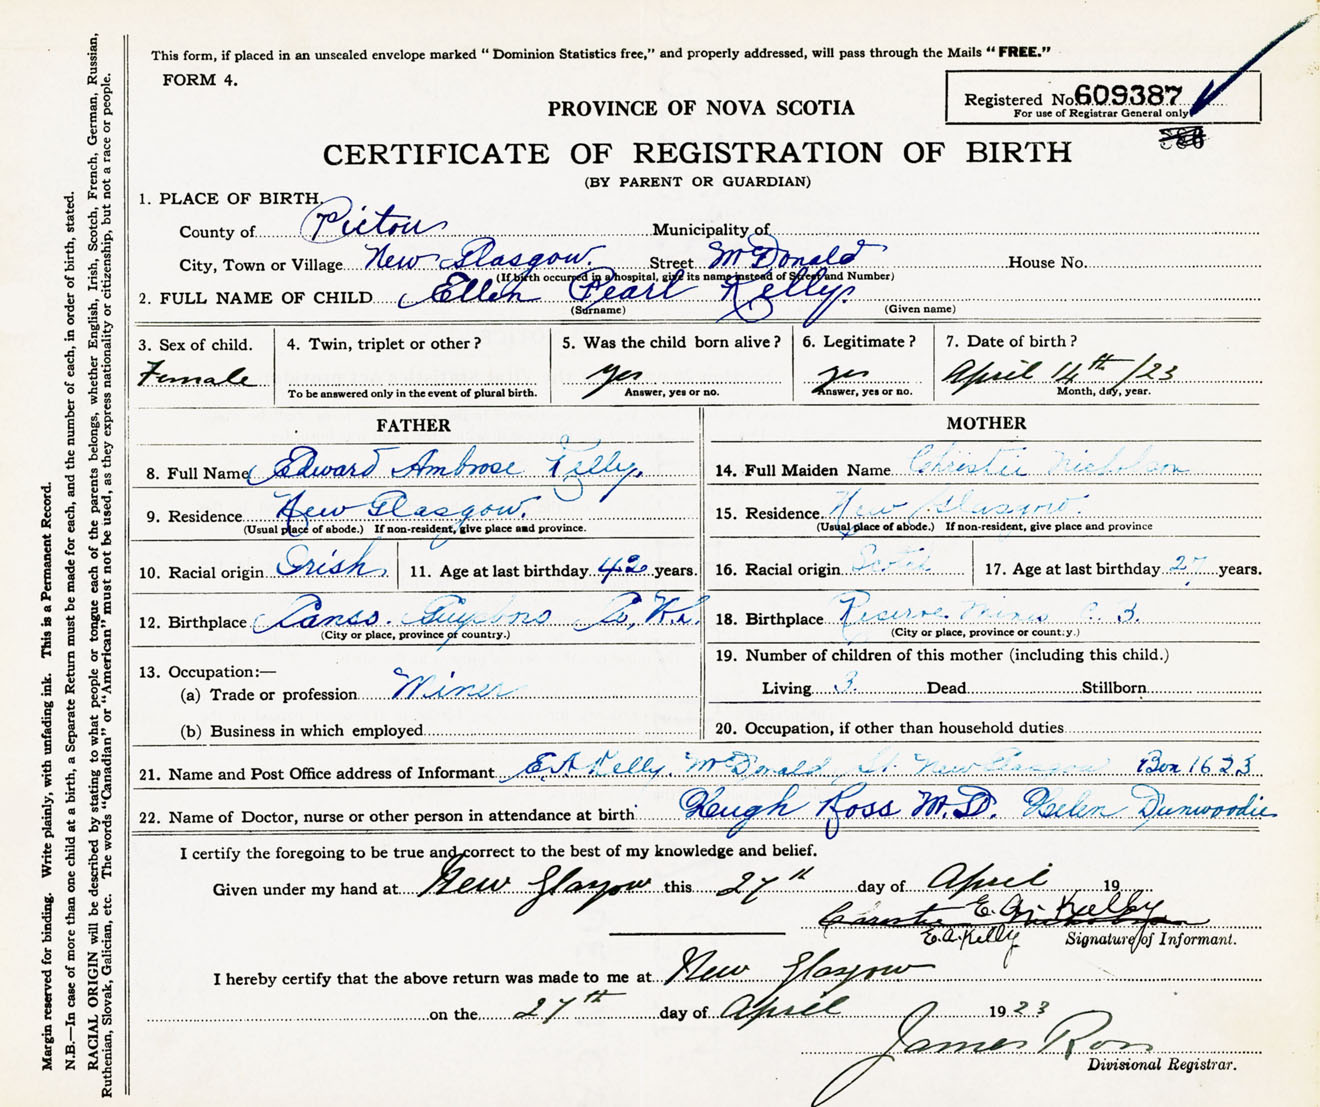 This form, if placed in an unsealed envelope marked "Dominion Statistics free," and properly addressed, will pass through the Mails "FREE."
FORM 4.
Registered No. 609387
For use of Registrar General only
PROVINCE OF NOVA SCOTIA
CERTIFICATE OF REGISTRATION OF BIRTH
(BY PARENT OR GUARDIAN)
1. PLACE OF BIRTH.
County of Pictou Municipality of
City, Town or Village New Glasgow. Street McDonald House No.
(If birth occurred in a hospital, give its name instead of Street and Number)
2. FULL NAME OF CHILD Ellen Pearl Kelly.
(Surname) (Given name)
3. Sex of child. 4. Twin, triplet or other? 5. Was the child born alive? 6. Legitimate? 7. Date of birth?
Female yes yes April 14th /23
To be answered only in the event of plural birth. Answer, yes or no. Answer, yes or no. Month, day, year.
FATHER MOTHER
8. Full Name Edward Ambrose Kelly. 14. Full Maiden Name Christie Nicholson
9. Residence New Glasgow. 15. Residence New Glasgow.
(Usual place of abode.) If non-resident, give place and province. (Usual place of abode.) If non-resident, give place and province
10. Racial origin Irish. 11. Age at last birthday 42 years. 16. Racial origin 17. Age at last birthday 27 years.
12. Birthplace Canso. Guysboro Co, N.S. 18. Birthplace Reserve Mines C. B.
(City or place, province or country.) (City or place, province or country.)
13. Occupation:— 19. Number of children of this mother (including this child.)
(a) Trade or profession Miner Living 3. Dead Stillborn
(b) Business in which employed 20. Occupation, if other than household duties
21. Name and Post Office address of Informant E A Kelly. McDonald St. New Glasgow Box 1623
22. Name of Doctor, nurse or other person in attendance at birth Hugh Ross M.D. Helen Dunwoodie
I certify the foregoing to be true and correct to the best of my knowledge and belief.
Given under my hand at New Glasgow this 27th day of April 19
Christie E. A. Kelly
E.A. Kelly Signature of Informant.
I hereby certify that the above return was made to me at New Glasgow
on the 27th day of April 1923
James Ross
Divisional Registrar.
Margin reserved for binding. Write plainly, with unfading ink. This is a Permanent Record.
N.B.—In case of more than one child at a birth, a Separate Return must be made for each, and the number of each, in order of birth, stated.
RACIAL ORIGIN will be described by stating to what people or tongue each of the parents belongs, whether English, Irish, Scotch, French, German, Russian,
Ruthenian, Slovak, Galician, etc. The words "Canadian" or "American" must not be used, as they express nationality or citizenship, but not a race or people.